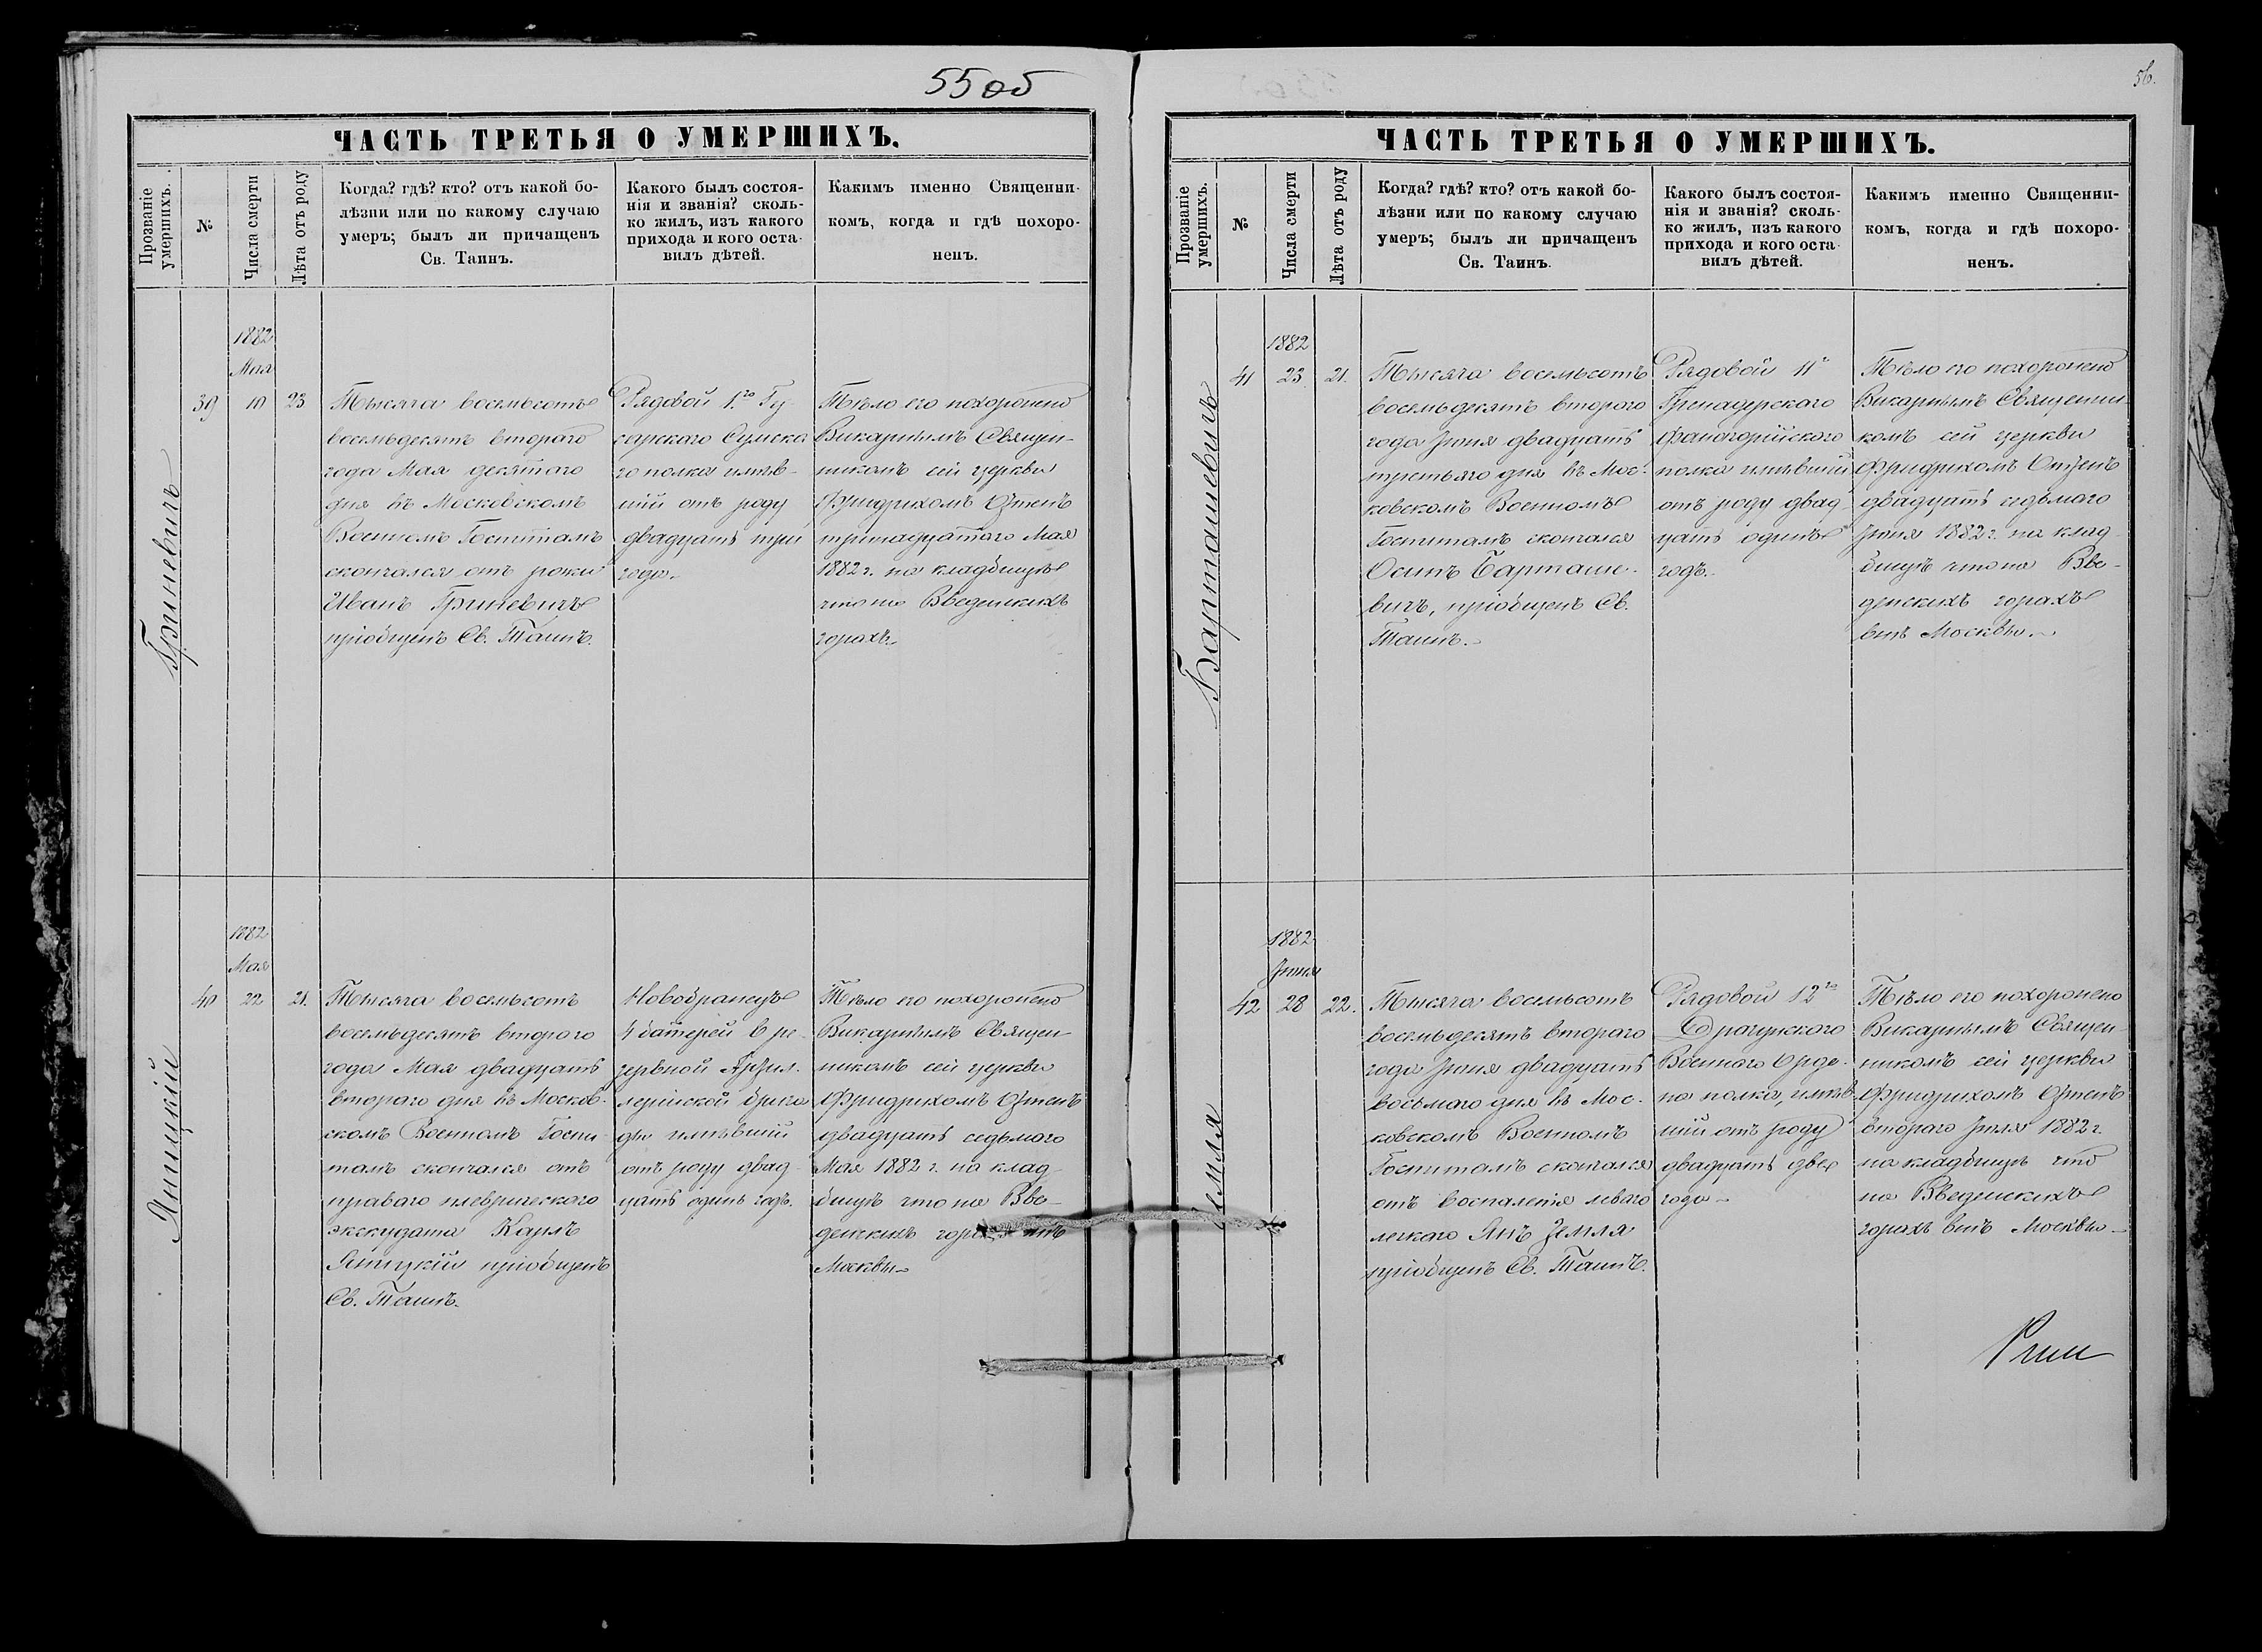 55 об
ЧАСТЬ ТРЕТЬЯ О УМЕРШИХЪ.
Прозваніе умершихъ.
№
Числа смерти
Лѣта отъ роду
Когда? гдѣ? кто? отъ какой бо-
лѣзни или по какому случаю
умеръ; былъ ли причащенъ
Св. Таинъ.
Какого былъ состоя-
нія и званія? сколь-
ко жилъ, изъ какого
прихода и кого оста-
вилъ дѣтей.
Какимъ именно Священни-
комъ, когда и гдѣ похоро-
ненъ.
Гриневичъ
39
1882
Мая
10
23
Тысяча восемьсотъ
восемьдесятъ втораго
года Мая десятаго
дня въ Московскомъ
Военномъ Госпиталѣ
скончался отъ рожи
Иванъ Гриневичъ
пріобщенъ Св. Таинъ.
Рядовой 1.го Гу-
сарскаго Сумска
го полка имѣв-
шій отъ роду
двадцать три
года.
Тѣло его похоронено
Викарнымъ Священ-
никомъ сей церкви
Фридрихомъ
тринадцатаго Мая
1882 г. на кладбищѣ
что на Введенскихъ
горахъ.
40
1882
Мая
22
21.
Тысяча восемьсотъ
восемьдесятъ второго
года Мая двадцать
втораго дня въ Москов-
скомъ Военномъ Госпи-
талѣ скончался отъ
праваго плеврическаго
экскудата Карлъ
пріобщенъ
Св. Таинъ.
Новобранецъ
4 батереи в ре-
зервной Артил.
лерійской брига
ды имѣвшій
отъ роду двад-
цать одинъ годъ.
Тѣло его похоронено
Викарнымъ Священ
никомъ сей церкви
Фридрихомъ
двадцать седьмого
Мая 1882 г. на клад-
бищѣ что на Вве-
денскихъ внѣ
Москвы
56.
ЧАСТЬ ТРЕТЬЯ О УМЕРШИХЪ.
Прозваніе умершихъ.
№
Числа смерти
Лѣта отъ роду
Когда? гдѣ? кто? отъ какой бо-
лѣзни или по какому случаю
умеръ; былъ ли причащенъ
Св. Таинъ.
Какого былъ состоя-
нія и званія? сколь-
ко жилъ, изъ какого
прихода и кого оста-
вилъ дѣтей.
Какимъ именно Священни-
комъ, когда и гдѣ похоро-
ненъ.
Барташевичъ
41
1882
23
21.
Тысяча восемьсотъ
восемьдесятъ второго
года Іюня двадцать
третьяго дня въ Мос-
ковскомъ Военномъ
Госпиталѣ скончался
Осипъ Барташе-
вичъ, пріобщенъ Св.
Таинъ.
Рядовой 11
Гренадерскаго
Фанагорійскаго
полка имѣвшій
отъ роду двад-
цать одинъ
годъ.
Тѣло его похоронено
Викарнымъ Священни-
комъ сей церкви
Фридрихомъ
двадцать седьмого
Іюня 1882 г. на клад-
бищѣ что на Вве-
денскихъ горахъ
внѣ Москвы.
Земля
42
1882
Іюня
28
22.
Тысяча восемьсотъ
восемьдесятъ втораго
года Іюня двадцать
восьмаго дня въ Мос-
ковскомъ Военномъ
Госпиталѣ скончался
отъ воспаленія леваго
легкаго Янъ Земля
пріобщенъ Св. Таинъ.
Рядовой 12го
Драгунскаго
Военнаго Орде-
на полка, имѣв-
шій отъ роду
двадцать два
года
Тѣло его похоронено
Викарнымъ Священ-
никомъ сей церкви
Фридрихомъ
втораго Іюля 1882 г.
на кладбищѣ что
на Введенскихъ
горахъ внѣ Москвы